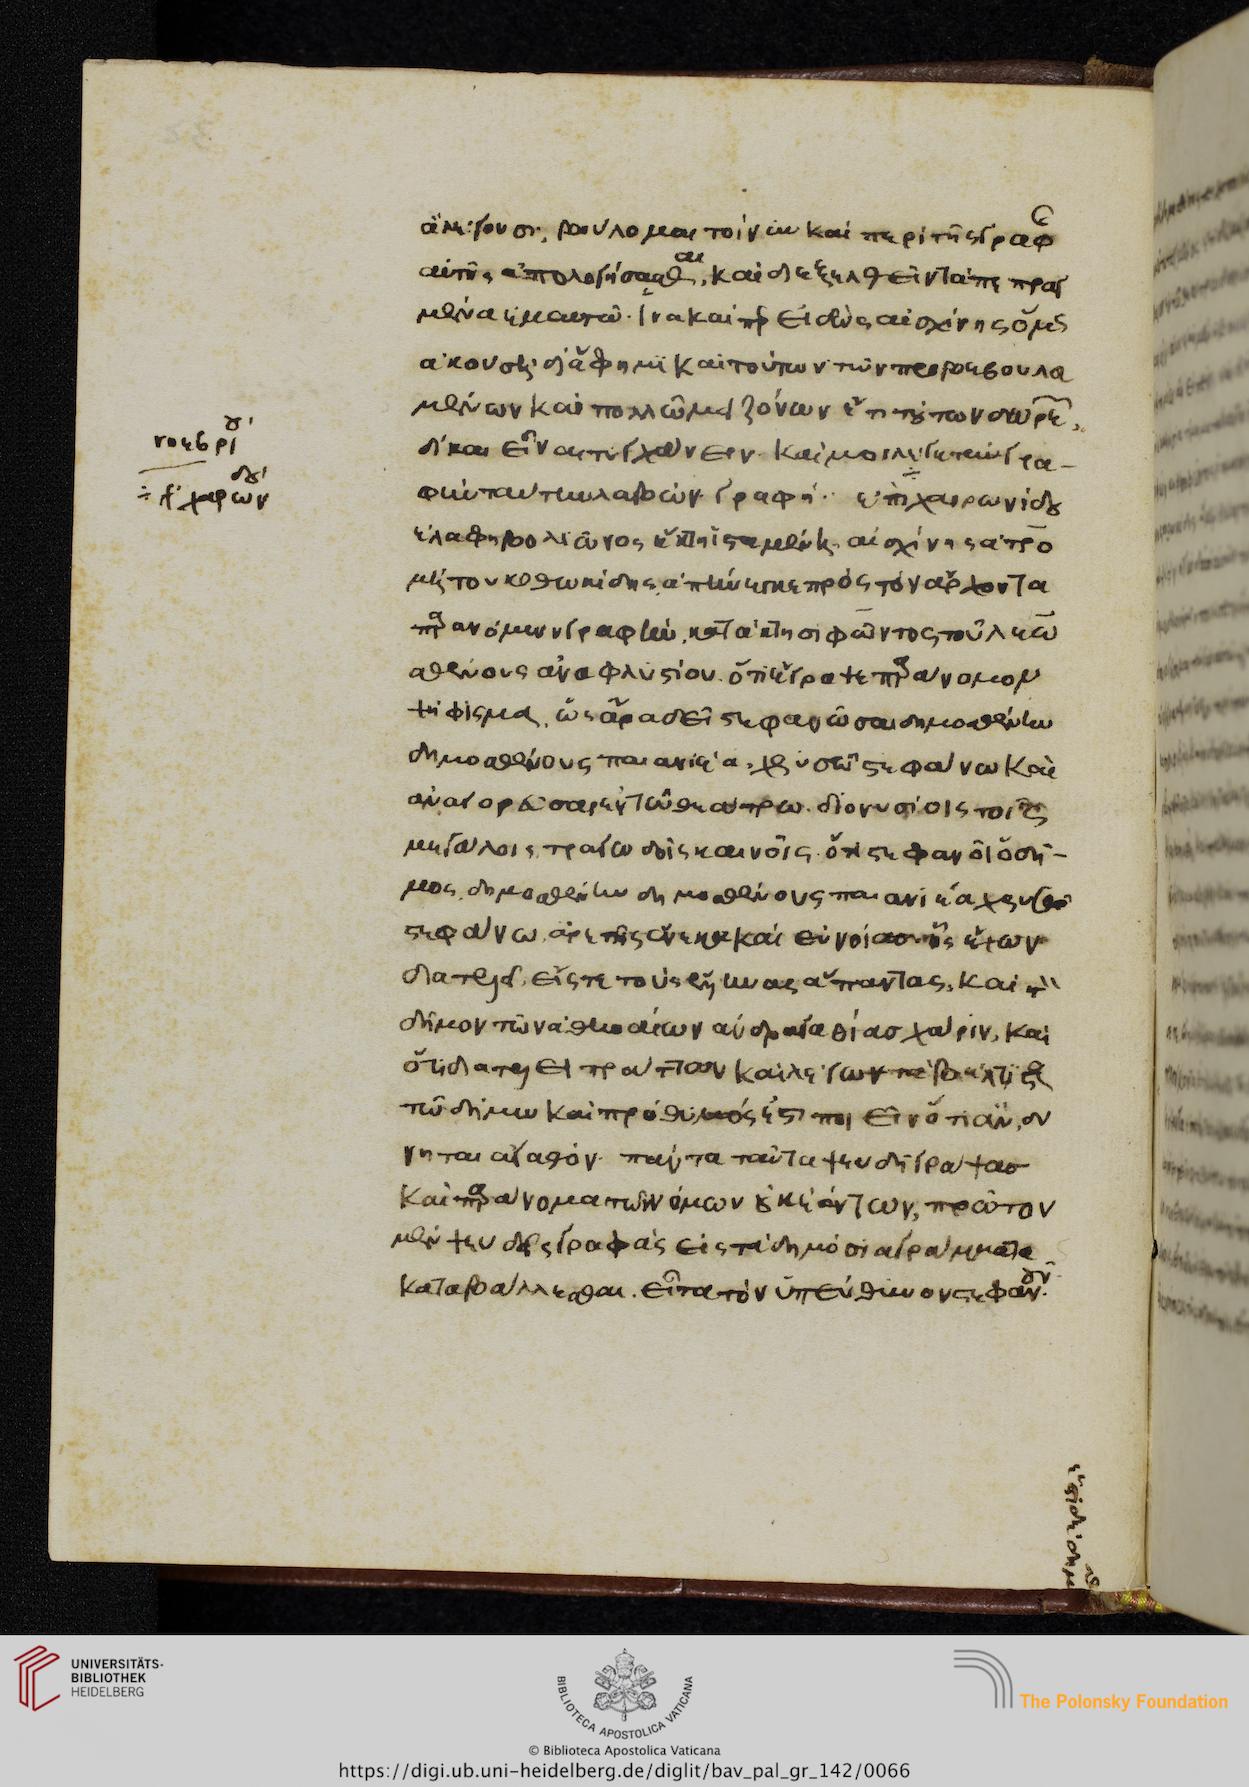 νοεμβρί
χαιρων
ἀνέχουσι. βούλομαι τοίνυν καὶ περὶ τῆς γραφῆς
αὐτῆς ἀπολογήσασθαι, καὶ διεξελθεῖν τὰ πεπραγ
μένα ἐμαυτῶ. ἵνα καὶ περ εἰδὼς αἰσχίνης ὅμως
ἀκούση δἰ ἅ φημι καὶ τούτων τῶν προβεβουλευ
μένων καὶ πολλῶ μειζόνων ἔτι τούτων δωρεῶν,
δίκαιος εἶναι τυγχάνειν. καί μοι λέγε τὴν γρα-
φὴν ταύτην λαβών. γραφή. ἐπὶ χαιρωνίδου
ἐλαφηβολιῶνος ἕκτη ἱσταμένου. αἰσχίνης ἀτρο
μήτου κοθωκίδης ἀπήνεγκε πρὸς τὸν ἄρχοντα
παρανόμων γραφὴν, κατὰ κτησιφῶντος τοῦ λεω
σθένους ἀναφλυστίου. ὅτι ἔγραψε παράνομον
ψήφισμα, ὡς ἄρα δεῖ στεφανῶσαι δημοσθένην
δημοσθένους παιανιέα, χρυσῶ στεφάνω καὶ
ἀναγορεῦσαι ἐν τῶ θεάτρω διονυσίοις τοῖς
μεγάλοις τραγωδοῖς καινοῖς. ὅτι στεφανοῖ ὁ δῆ-
μος δημοσθένην δημοσθένους παιανιέα χρυσῶ
στεφάνω, ἀρετῆς ἕνεκα καὶ εὐνοίας ἧς ἔχων
διατελεῖ, εἴς τε τοὺς ἕλληνας ἅπαντας, καὶ τὸν
δῆμον τῶν ἀθηναίων ἀνδραγαθίας χάριν, καὶ
ὅτι διατελεῖ πράττων καὶ λέγων τὰ βέλτιστα
τῶ δήμω καὶ πρόθυμός ἐστι ποιεῖν ὅτι ἂν δύ
νηται ἀγαθόν. πάντα ταῦτα ψευδῆ γράψας
καὶ παράνομα τῶν νόμων οὐκ ἐώντων, πρῶτον
μὲν ψευδεῖς γραφὰς εἰς τὰ δημόσια γράμματα
καταβάλλεσθαι. εἶτα τὸν ὑπεύθυνον στεφανοῦν.
ἐπειδὴ δημοσθ
UNIVERSITÄTS-
BIBLIOTHEK
HEIDELBERG
BIBLIOTECA APOSTOLICA VATICANA
The Polonsky Foundation
© Biblioteca Apostolica Vaticana
https://digi.ub.uni-heidelberg.de/diglit/bav_pal_gr_142/0066